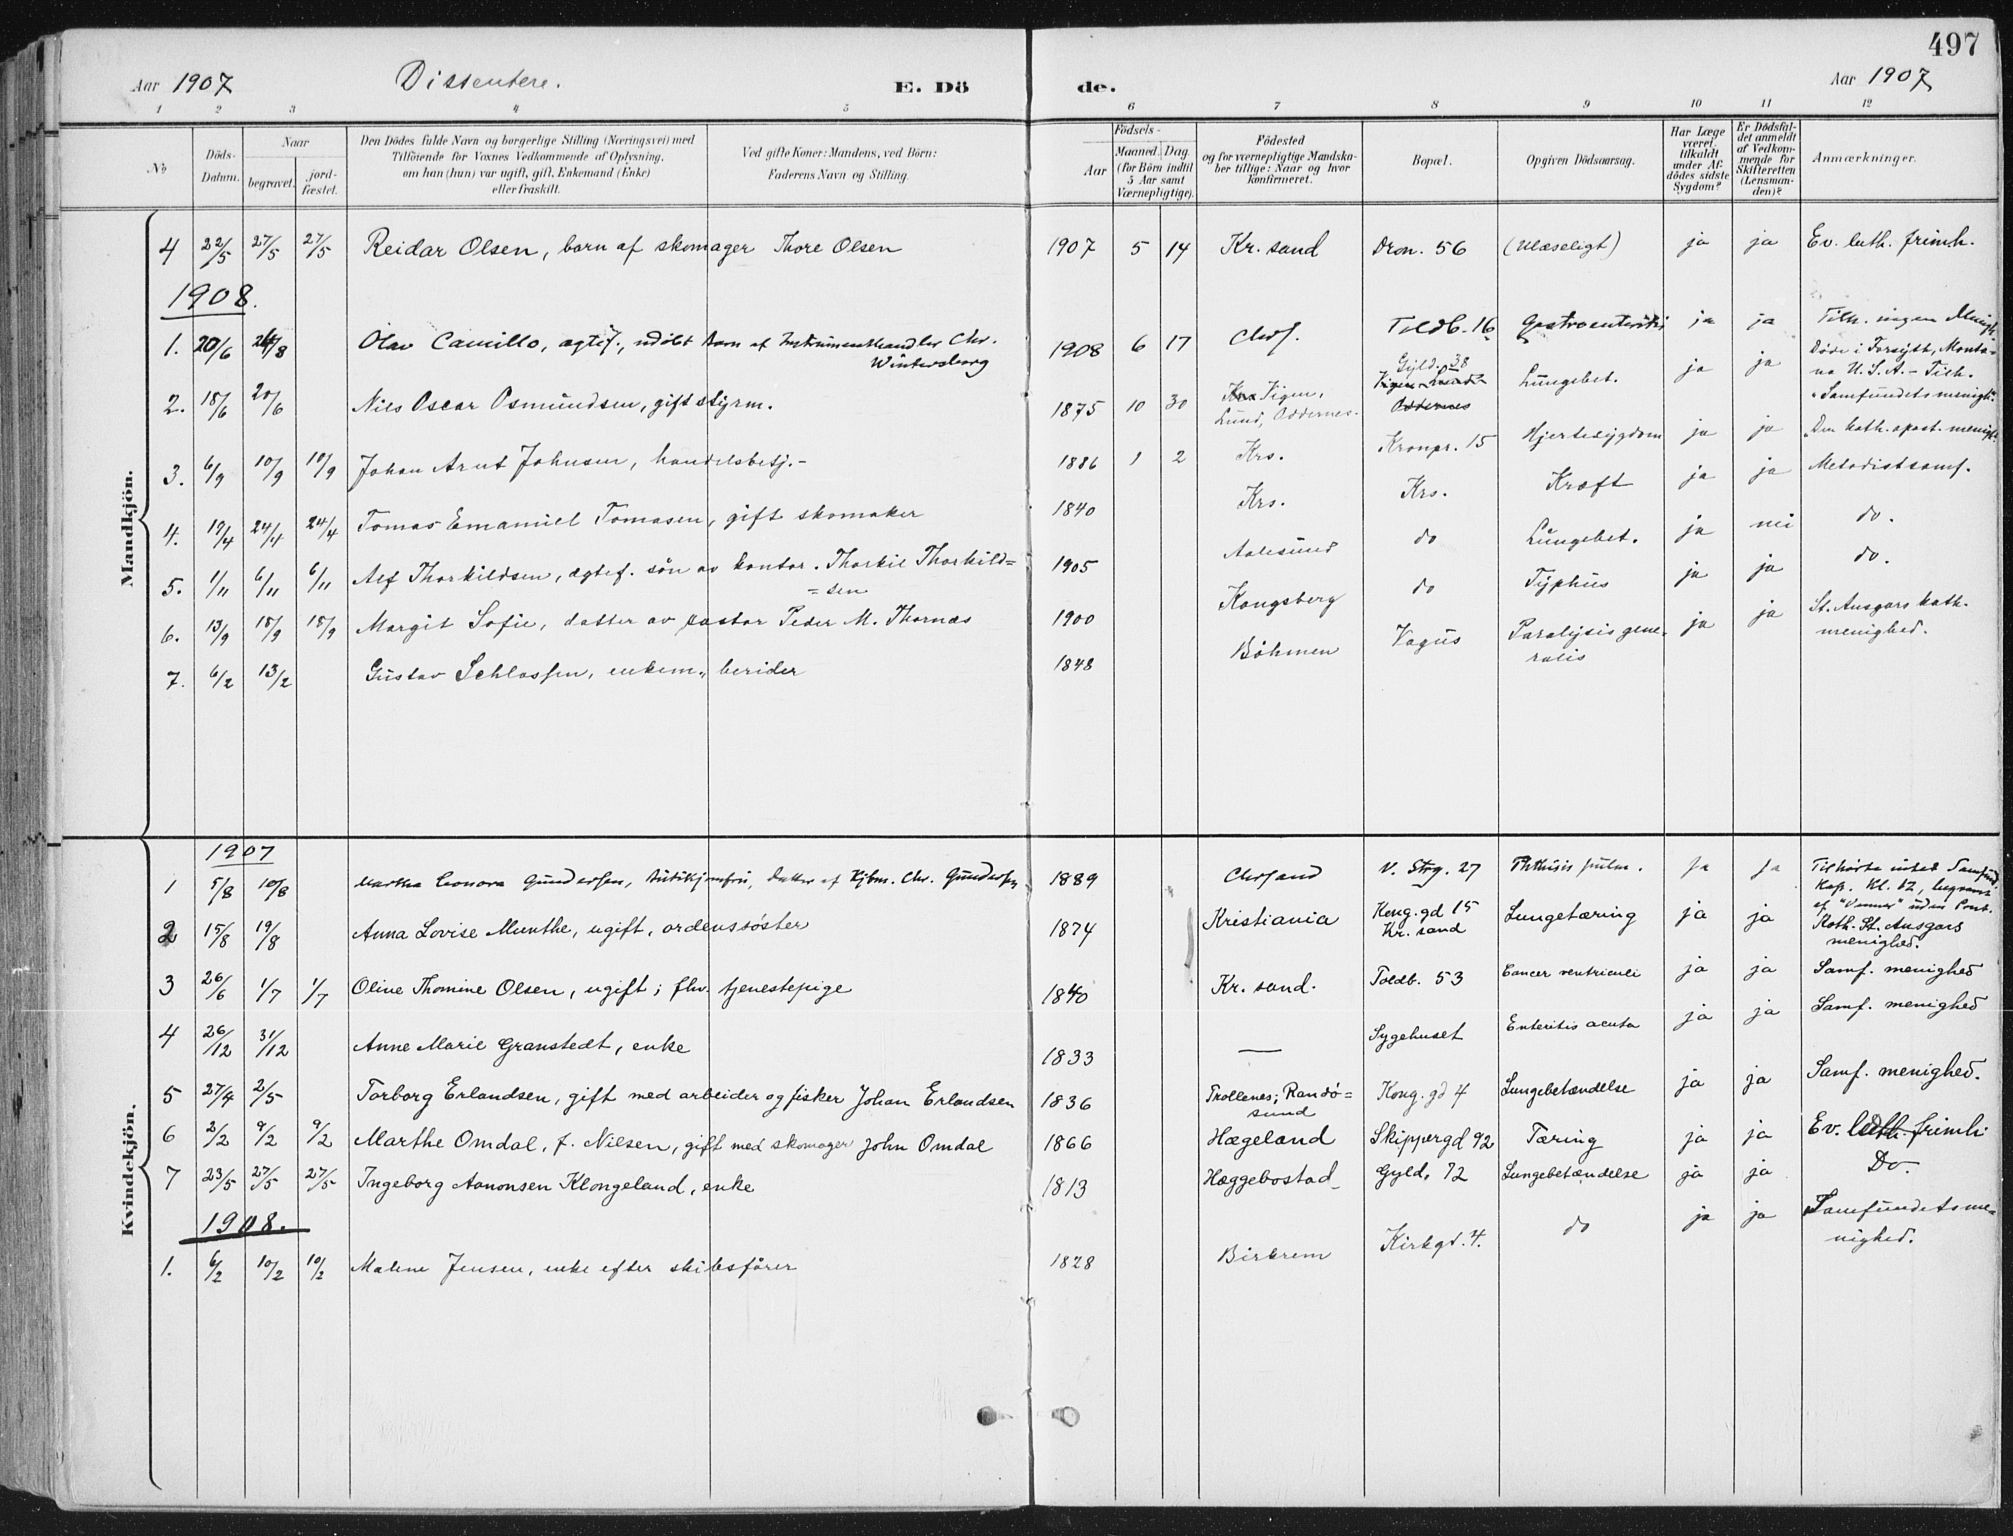 497
Aar 1907 Dissentere. E. Dö de. Aar 1907
1 2 3 4 5 6 7 8 9 10 11 12
No
Döds-Datum.
Naar
begravet.
jord-fæstet.
Den Dödes fulde Navn og borgerlige Stilling (Næringsvei) med
Tilföiende for Voxnes Vedkommende af Oplysning,
om han (hun) var ugift, gift, Enkemand (Enke)
eller fraskilt.
Ved gifte Koner: Mandens, ved Börn:
Faderens Navn og Stilling.
Födsels-
Aar
Maaned. Dag.
(for Börn indtil
5 Aar samt
Værnepligtige).
Födested
og for værnepligtige Mandska-
ber tillige: Naar og hvor
konfirmeret.
Bopæl.
Opgiven Dödsaarsag.
Har Læge
været
tilkaldt
under Af-
dödes sidste
Sygdom?
Er Dödsfal-
det anmeldt
af Vedkom-
mende for
Skifteretten
(Lensman-
den)?
Anmærkninger.
Mandkjön.
4 22/5 27/5 27/5 Reidar Olsen, barn af skomager Thore Olsen 1907 5 14 Kr. sand Dron. 56 (Ulæseligt) ja ja Ev. luth. frimh.
1908.
1. 20/6 24/8 Olav Camillo, ægtef., udöbt barn af Instrumenthandler Chr. Wintersborg 1908 6 17 Chrs. Toldb. 16 Gastroenteritis ja ja Tilh. ingen Menigh.
2. 18/6 20/6 Nils Oscar Osmundsen, gift styrm. 1875 10 30 Vigen, Lund, Oddernes. Gyld. 38 Lungebet. ja ja Döde i Forsyth, Monta-
na U.S.A. – Tilh.
"Samfundets menigh."
3. 6/9 10/9 10/9 Johan Arnt Johnsen, handelsbetj. – 1886 1 2 Krs. Kronpr. 15 Hjertesygdom ja ja "Den kath. apost. menigh."
4. 19/4 24/4 24/4 Tomas Emanuel Tomasen, gift skomaker 1840 Krs. Krs. Kræft ja ja Metodistsamf.
5. 1/11 6/11 6/11 Alf Thorkildsen, ægtef. sön av kontor. Thorkil Thorkild=
=sen 1905 Aalesund do Lungebet. ja nei do.
6. 13/9 18/9 18/9 Margit Sofie, datter av pastor Peder M. Thornæs 1900 Kongsberg do Typhus ja ja do.
7. 6/2 13/2 Gustav Schlossen, enkem., berider 1848 Böhmen Vagus Paralysis gene-
ralis ja ja St. Ansgars kath.
menighed.
Kvindekjön.
1907
1 5/8 10/8 Martha Leonora Gundersen, butikjomfru, datter af Kjbm. Chr. Gundersen 1889 Chrsand V. Strg. 27 Phthisis pulm. ja ja Tilhörte intet Samfund.
Kap. Kl. 12, begravet
af "Venner" uden Prest.
2 15/8 19/8 Anna Lovise Munthe, ugift, ordenssöster 1874 Kristiania Kong. gd 15
Kr. sand Lungetæring ja ja Kath. St. Ansgars
menighed.
3 26/6 1/7 1/7 Oline Thomine Olsen, ugift; fhv. tjenestepige 1840 Kr. sand. Toldb. 53 Cancer ventriculi ja ja Samf. menighed
4 26/12 31/12 Anne Marie Granstedt, enke 1833 — Sygehuset Enteritis acuta ja ja Samf. menighed
5 27/4 2/5 Torborg Erlandsen, gift med arbeider og fisker Johan Erlandsen 1836 Trollenes; Randö=
sund Kong. gd 4 Lungebetændelse ja ja Samf. menighed.
6 2/2 9/2 9/2 Marthe Omdal, f. Nilsen, gift med skomager John Omdal 1866 Hægeland Skippergd 92 Tæring ja ja Ev. luth. frimh.
7 23/5 27/5 27/5 Ingeborg Aanonsen Klongeland, enke 1813 Hæggebostad Gyld. 72 Lungebetændelse ja ja Do.
1908.
1. 6/2 10/2 10/2 Malene Jensen, enke efter skibsförer 1828 Birkrem Kirkgd. 4. do ja ja Samfundetsme-
nighed.